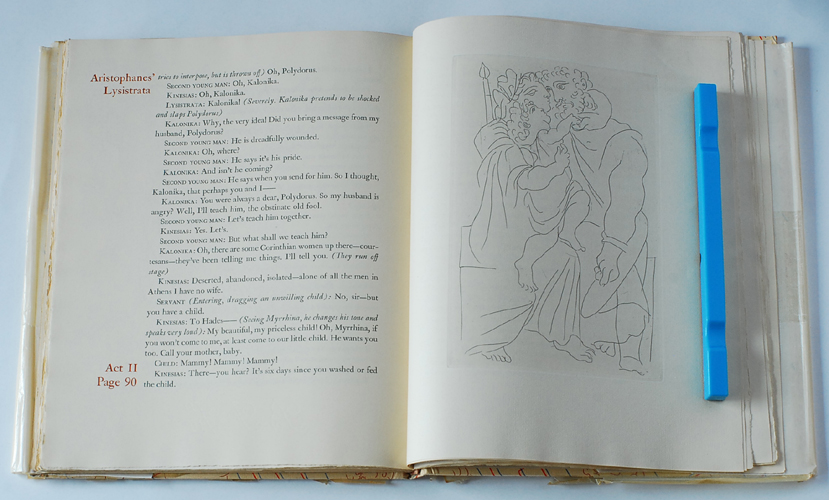 Aristophanes'
Lysistrata
tries to interpose, but is thrown off) Oh, Polydorus.
SECOND YOUNG MAN: Oh, Kalonika.
KINESIAS: Oh, Kalonika.
LYSISTRATA: Kalonika! (Severely. Kalonika pretends to be shocked
and slaps Polydorus)
KALONIKA: Why, the very idea! Did you bring a message from my
husband, Polydorus?
SECOND YOUNG MAN: He is dreadfully wounded.
KALONIKA: Oh, where?
SECOND YOUNG MAN: He says it's his pride.
KALONIKA: And isn't he coming?
SECOND YOUNG MAN: He says when you send for him. So I thought,
Kalonika, that perhaps you and I—
KALONIKA: You were always a dear, Polydorus. So my husband is
angry? Well, I'll teach him, the obstinate old fool.
SECOND YOUNG MAN: Let's teach him together.
KINESIAS: Yes. Let's.
SECOND YOUNG MAN: But what shall we teach him?
KALONIKA: Oh, there are some Corinthian women up there—cour-
tesans—they've been telling me things. I'll tell you. (They run off
stage)
KINESIAS: Deserted, abandoned, isolated—alone of all the men in
Athens I have no wife.
SERVANT (Entering, dragging an unwilling child.): No, sir—but
you have a child.
KINESIAS: To Hades— (Seeing Myrrhina, he changes his tone and
speaks very loud.): My beautiful, my priceless child! Oh, Myrrhina, if
you won't come to me, at least come to our little child. He wants you
too. Call your mother, baby.
CHILD: Mammy! Mammy! Mammy!
KINESIAS: There—you hear? It's six days since you washed or fed
the child.
Act II
Page 90